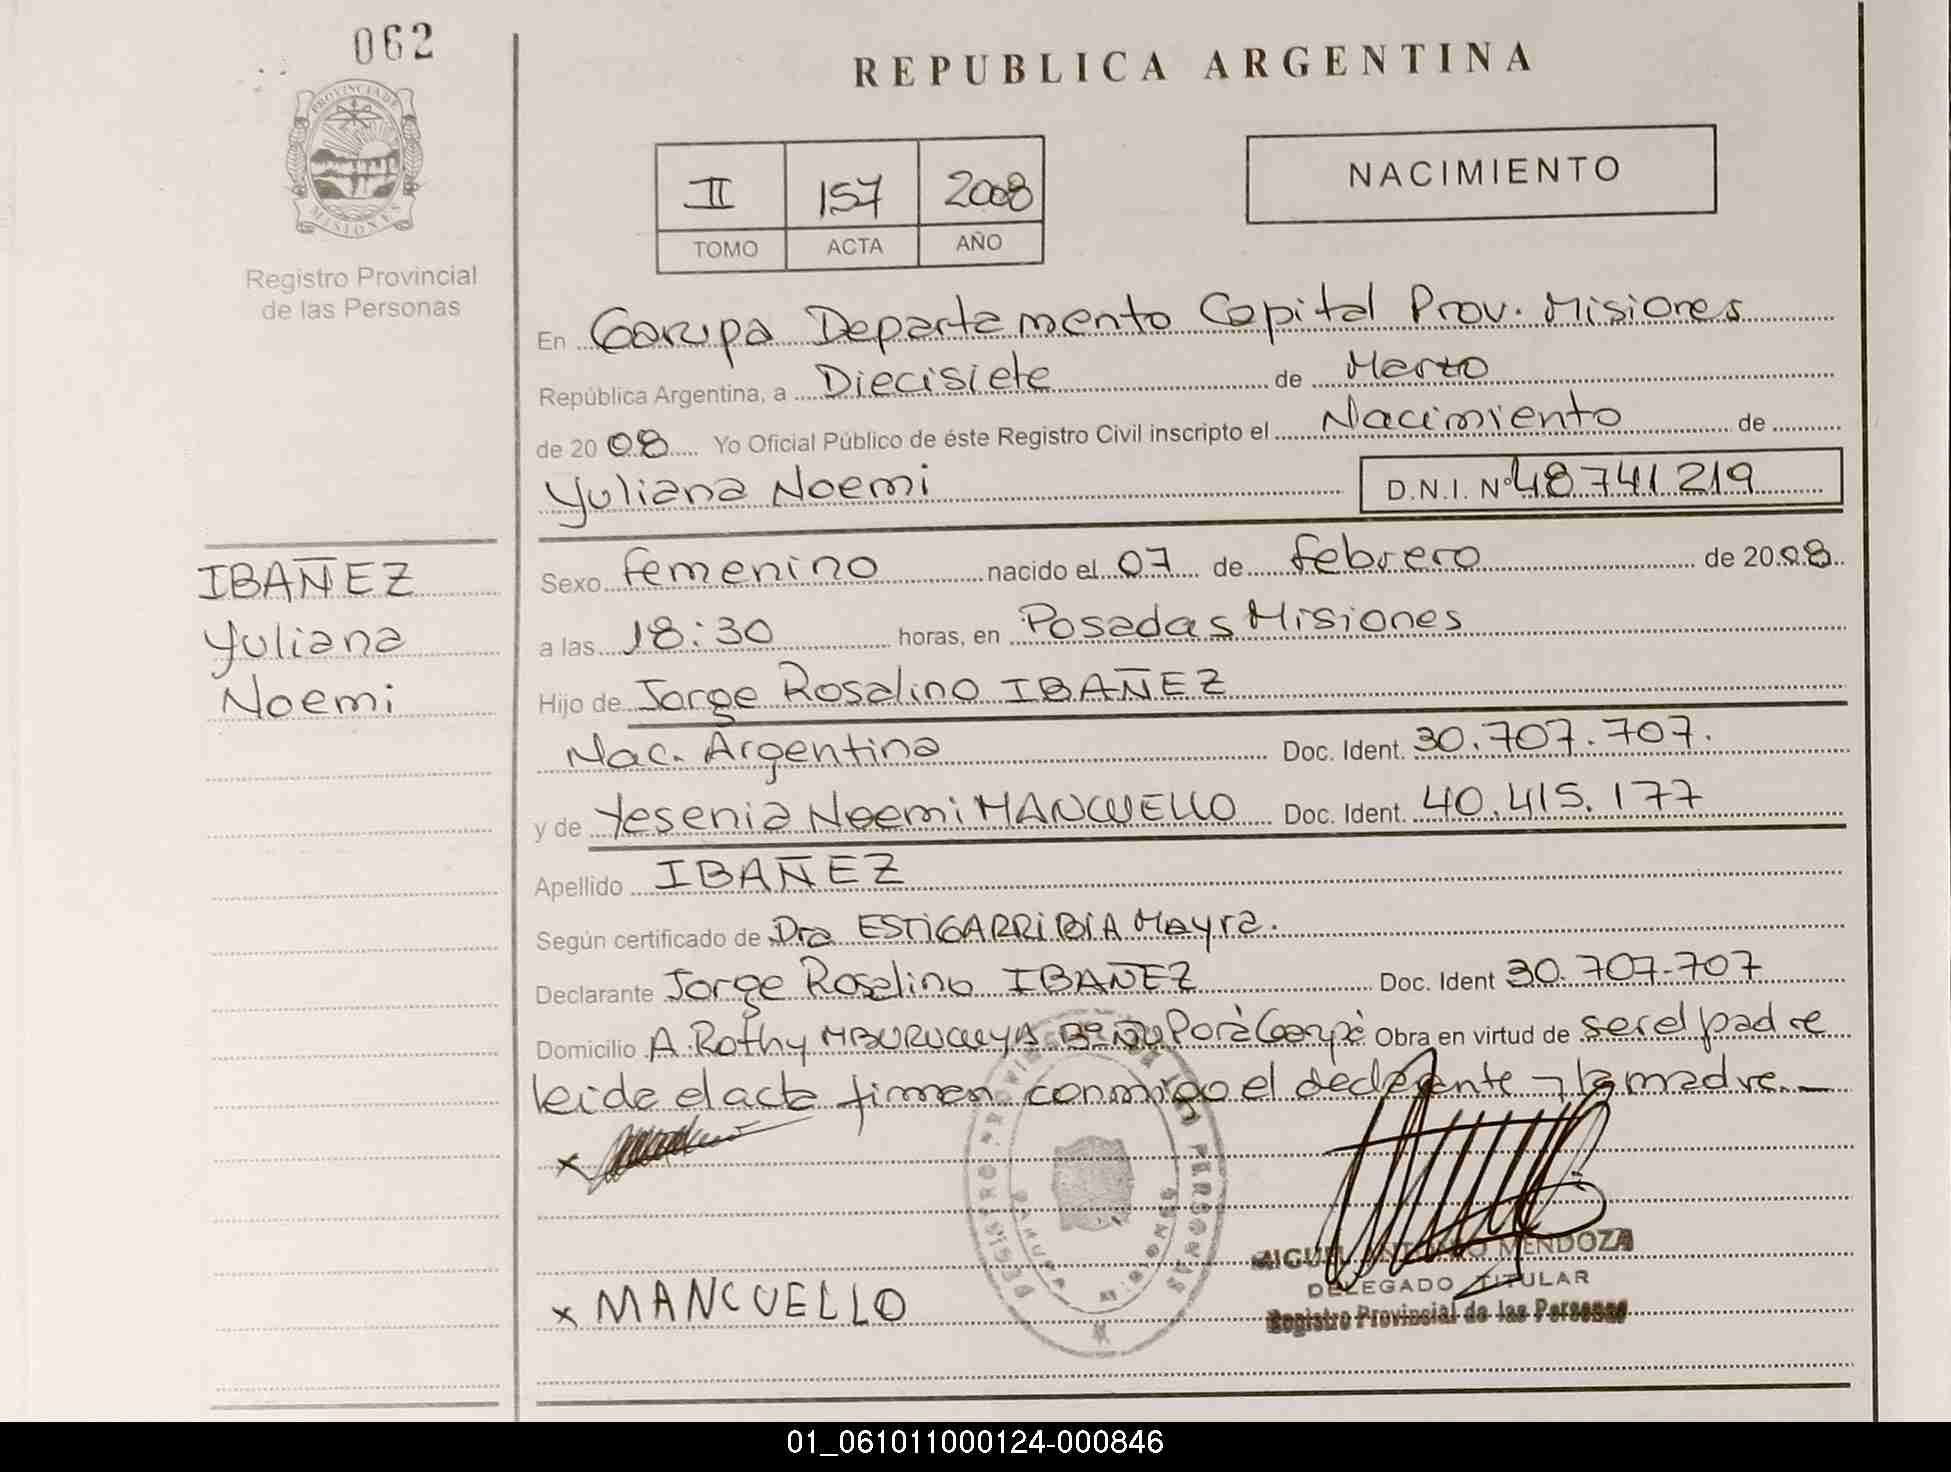 062
REPUBLICA ARGENTINA
PROVINCIA DE
MISIONES
Registro Provincial
de las Personas
II 157 2008
TOMO ACTA AÑO
NACIMIENTO
En Garupa Departamento Capital Prov. Misiones
República Argentina, a Diecisiete de Marzo
de 2008 Yo Oficial Público de éste Registro Civil inscripto el Nacimiento de
Yuliana Noemi D.N.I. Nº 48741219
IBAÑEZ
Yuliana
Noemi
Sexo femenino nacido el 07 de febrero de 2008
a las 18:30 horas, en Posadas Misiones
Hijo de Jorge Rosalino IBAÑEZ
Nac. Argentina Doc. Ident. 30.707.707.
y de Yesenia Noemi MANCUELLO Doc. Ident. 40.415.177
Apellido IBAÑEZ
Según certificado de Dra ESTIGARRIBIA Mayra.
Declarante Jorge Rosalino IBAÑEZ Doc. Ident 30.707-707
Domicilio A. Rothy MBURUCUYA Bº Ñu Porà Garupé Obra en virtud de ser el padre
leida el acta firman conmigo el declarante y la madre. —
x
MIGUEL ANTONIO MENDOZA
DELEGADO TITULAR
Registro Provincial de las Personas
x MANCUELLO
REGISTRO PROVINCIAL DE LAS PERSONAS
GARUPA
01_061011000124-000846